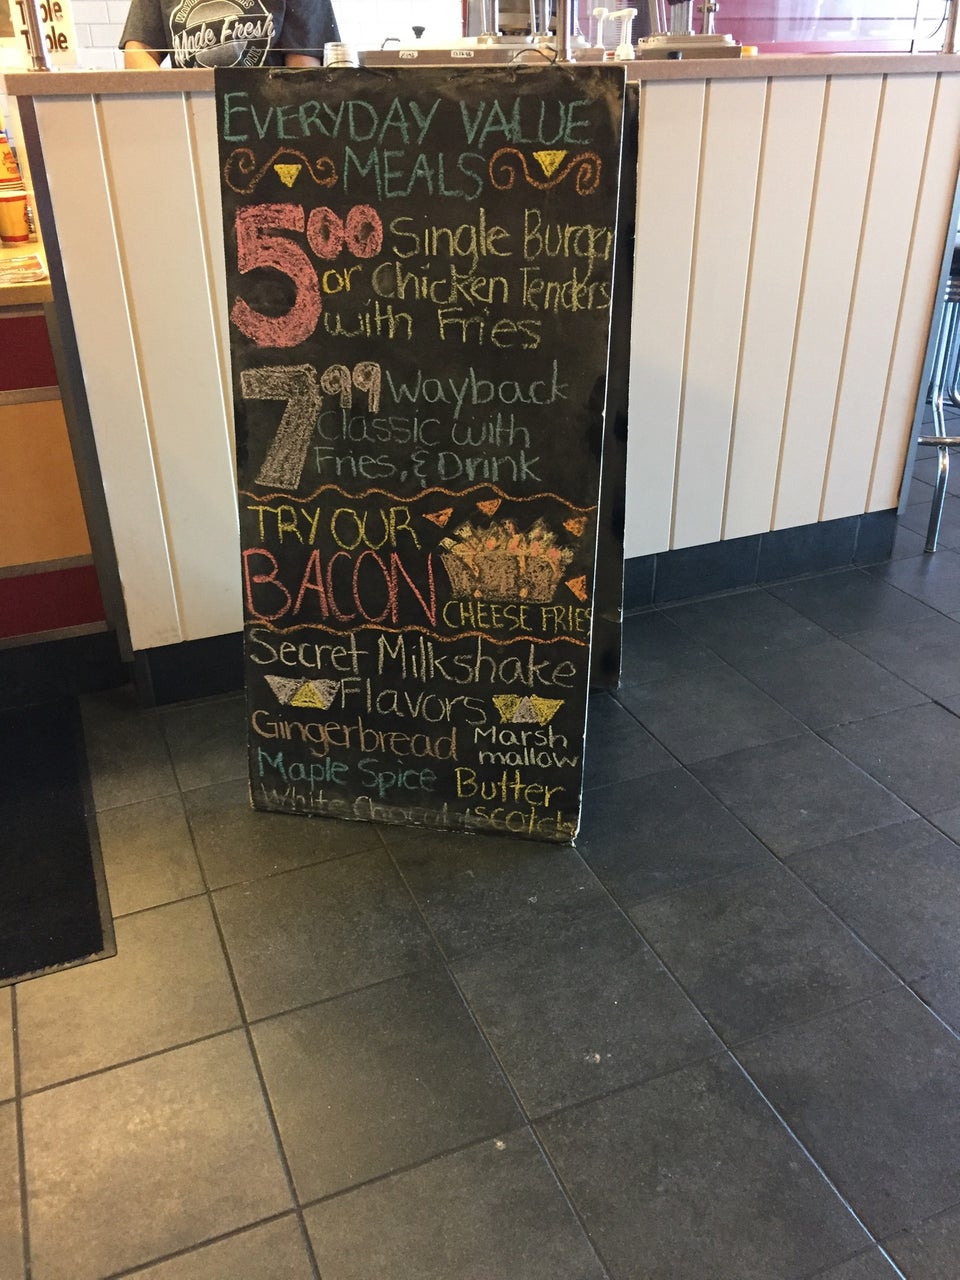 Made Fresh
EVERYDAY VALUE
MEALS
5.00 Single Burger
or Chicken Tenders
with Fries
7.99 Wayback
Classic with
Fries, & Drink
TRY OUR
BACON
CHEESE FRIES
Secret Milkshake
Flavors
Gingerbread
Marsh
mallow
Maple Spice
Butter
scotch
White Chocolate